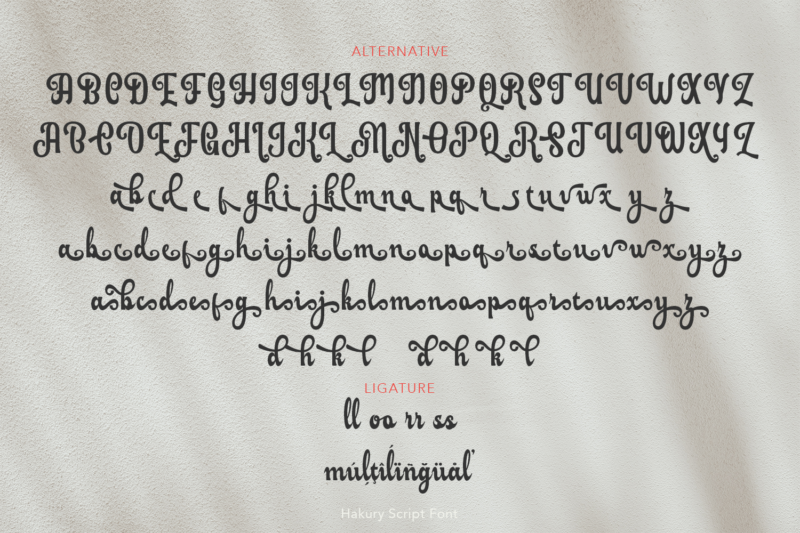 ALTERNATIVE
ABCDEFGHIJKLMNOPQRSTUVWXYZ
ABCDEFGHIJKLMNOPQRSTUVWXYZ
abcdefghijklmnopqrstuvwxyz
abcdefghijklmnopqrstuvwxyz
abcdefghijklmnopqrstuxyz
dhkl dhkl
LIGATURE
ll oo rr ss
múļţîĺïñğüáľ
Hakury Script Font